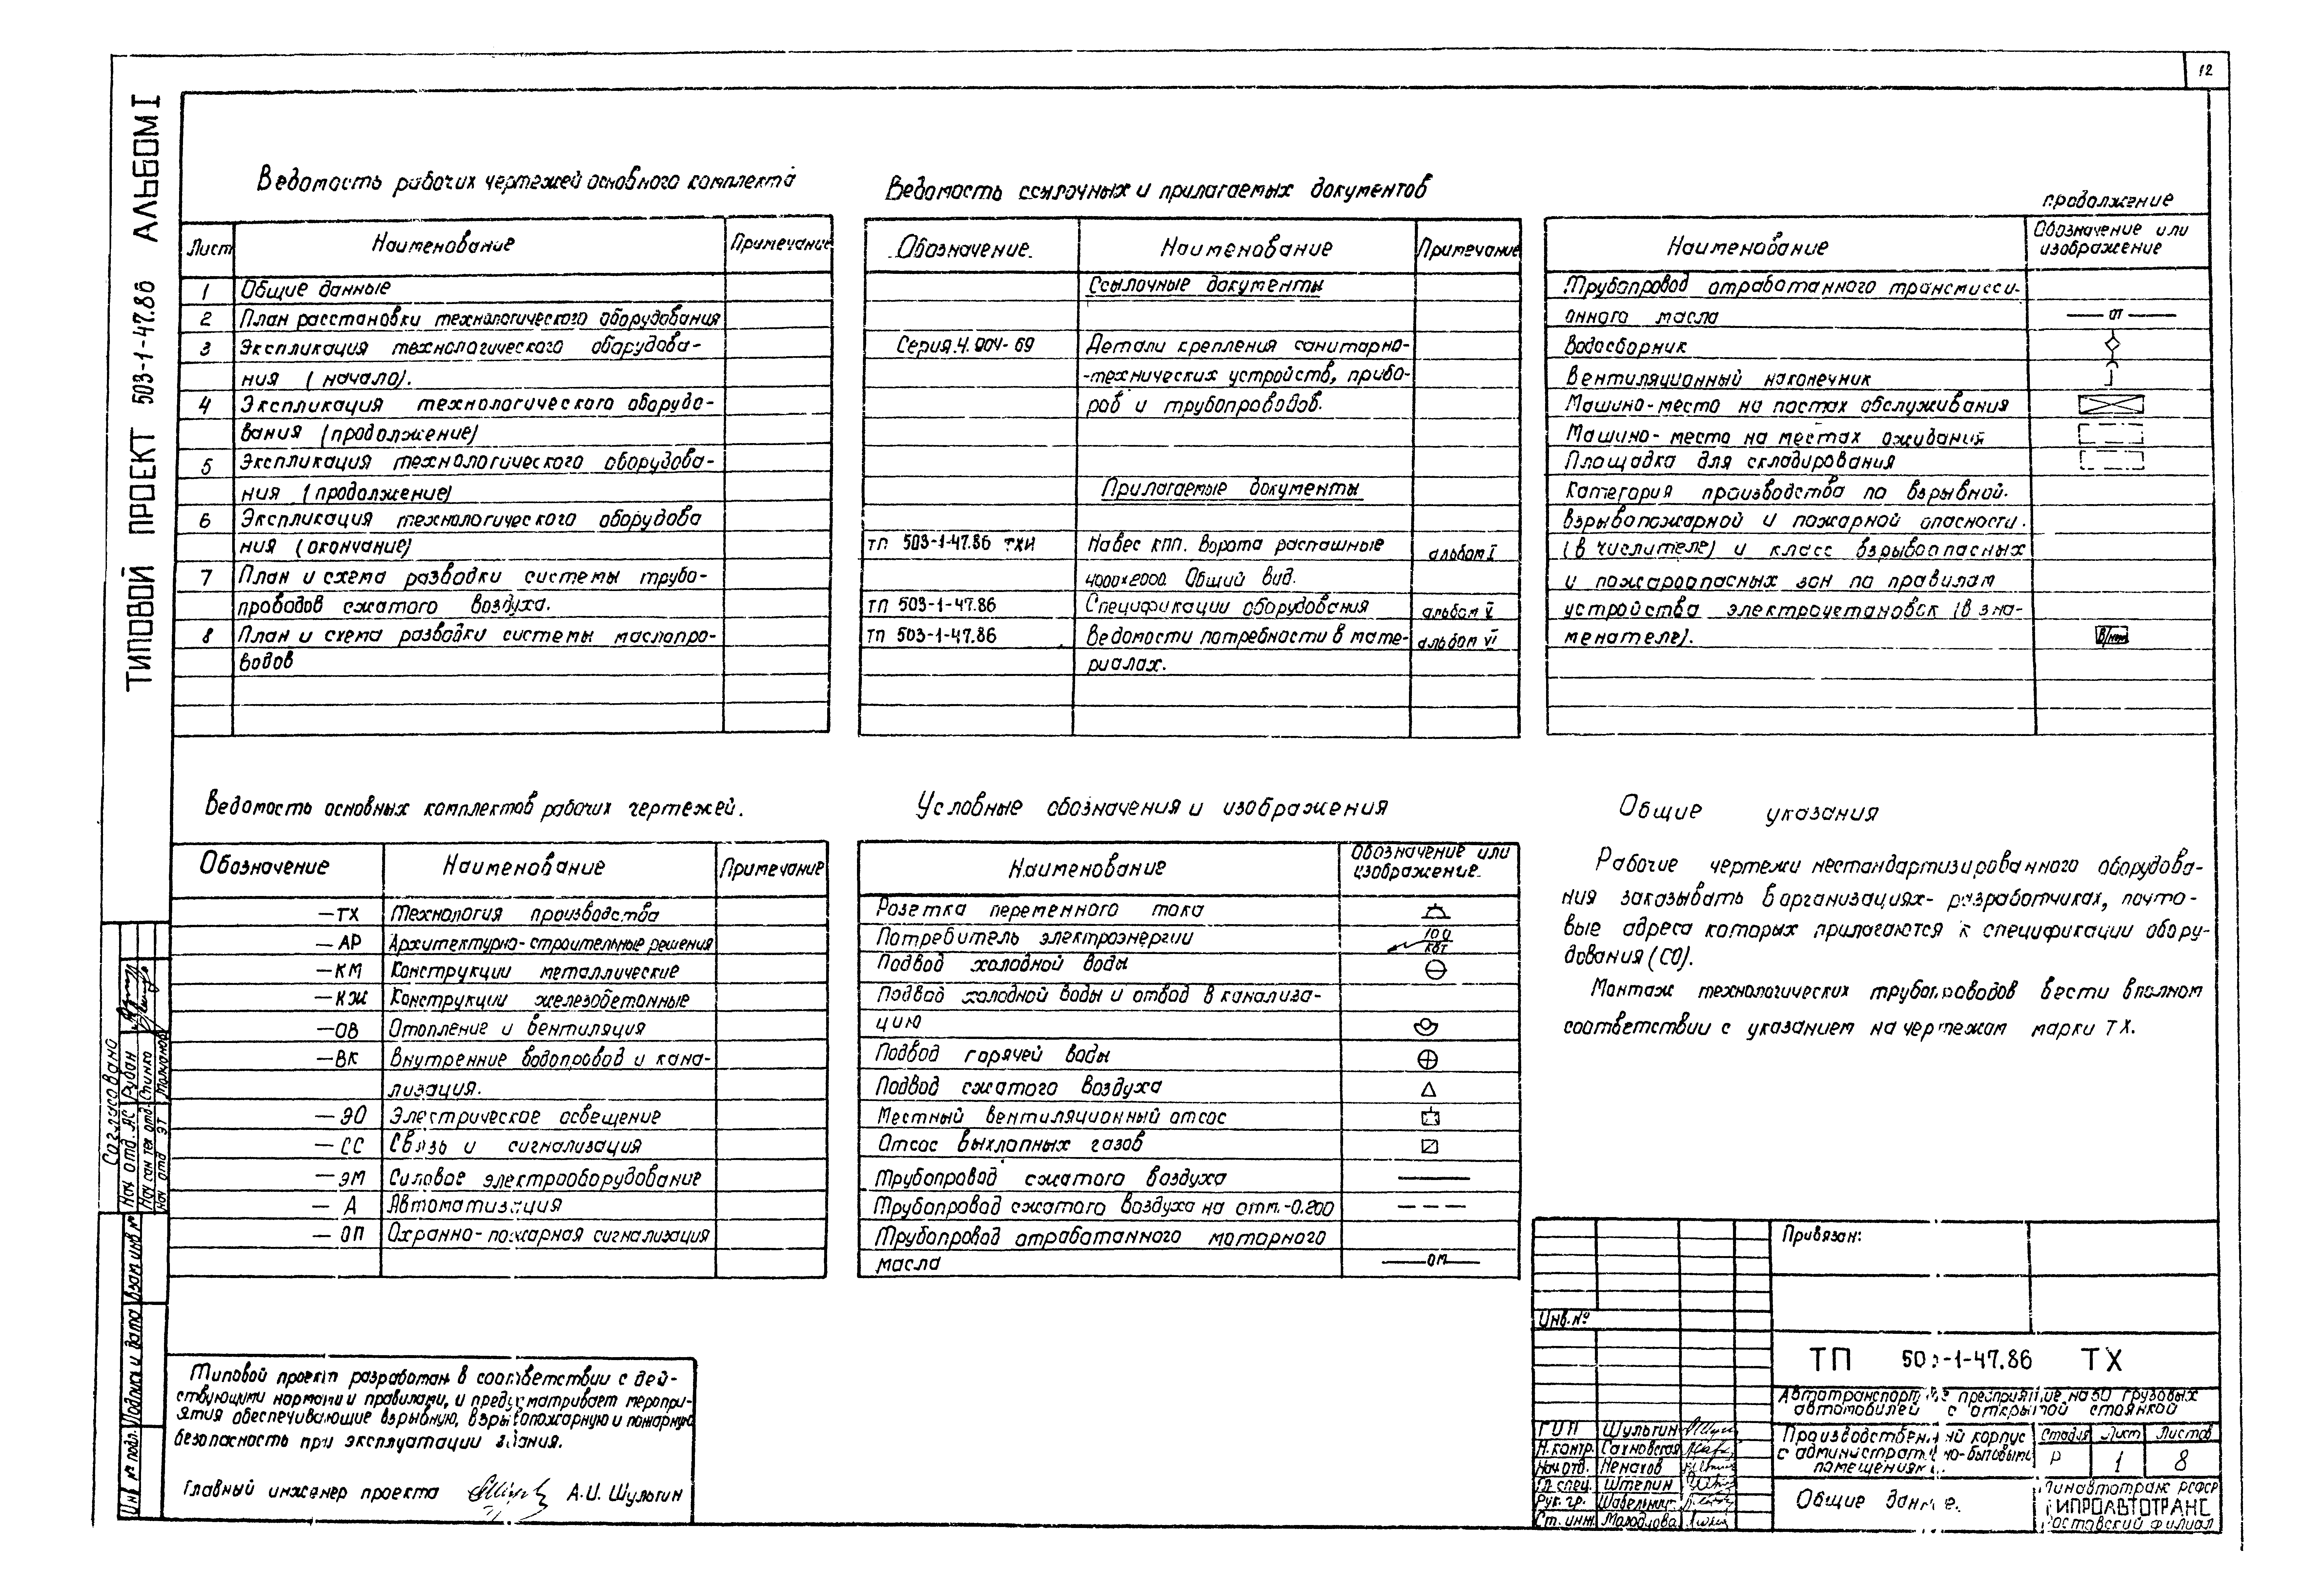 12
ТИПОВОЙ ПРОЕКТ 503-1-47.86 АЛЬБОМ I
Ведомость рабочих чертежей основного комплекта
Лист Наименование Примечание
1 Общие данные
2 План расстановки технологического оборудования
3 Экспликация технологического оборудова-
ния (начало).
4 Экспликация технологического оборудо-
вания (продолжение)
5 Экспликация технологического оборудова-
ния (продолжение)
6 Экспликация технологического оборудова
ния (окончание)
7 План и схема разводки системы трубо-
проводов сжатого воздуха.
8 План и схема разводки системы маслопро-
водов
Ведомость ссылочных и прилагаемых документов
Обозначение Наименование Примечание
Ссылочные документы
Серия.4.904-69 Детали крепления санитарно-
-технических устройств, прибо-
ров и трубопроводов.
Прилагаемые документы
ТП 503-1-47.86 ТХИ Навес КПП. Ворота распашные альбом I
4000×2000. Общий вид.
ТП 503-1-47.86 Спецификации оборудования альбом V
ТП 503-1-47.86 Ведомости потребности в мате- альбом VI
риалах.
продолжение
Наименование Обозначение или
изображение
Трубопровод отработанного трансмисси-
онного масла от
Водосборник
Вентиляционный наконечник
Машино-место на постах обслуживания
Машино-место на местах ожидания
Площадка для складирования
Категория производства по взрывной.
взрывопожарной и пожарной опасности.
(в числителе) и класс взрывоопасных
и пожароопасных зон по правилам
устройства электроустановок (в зна-
менателе).
Ведомость основных комплектов рабочих чертежей.
Обозначение Наименование Примечание
—ТХ Технология производства
—АР Архитектурно-строительные решения
—КМ Конструкции металлические
—КЖ Конструкции железобетонные
—ОВ Отопление и вентиляция
—ВК Внутренние водопровод и кана-
лизация.
—ЭО Элестрическое освещение
—СС Связь и сигнализация
—ЭМ Силовое электрооборудование
— А Автоматизация
— ОП Охранно-пожарная сигнализация
Условные обозначения и изображения
Наименование Обозначение или
изображение.
Розетка переменного тока
Потребитель электроэнергии 10.0
кВт
Подвод холодной воды
Подвод холодной воды и отвод в канализа-
цию
Подвод горячей воды
Подвод сжатого воздуха
Местный вентиляционный отсос
Отсос выхлопных газов
Трубопровод сжатого воздуха
Трубопровод сжатого воздуха на отм.-0.200
Трубопровод отработанного моторного
масла ом
Общие указания
Рабочие чертежи нестандартизированного оборудова-
ния заказывать в организациях-разработчиках, почто-
вые адреса которых прилагаются к спецификации обору-
дования (СО).
Монтаж технологических трубопроводов вести в полном
соответствии с указанием на чертежах марки ТХ.
Согласовано
Нач отд. АС Рубан
Нач сан тех отд. Спинко
Нач отд ЭТ
Инв № подл. Подпись и дата Взам инв №
Типовой проект разработан в соответствии с дей-
ствующими нормами и правилами, и предусматривает меропри-
ятия обеспечивающие взрывную, взрывопожарную и пожарную
безопасность при эксплуатации здания.
Главный инженер проекта А.И. Шульгин
Привязан:
Инв.№
ТП 503-1-47.86 ТХ
Автотранспортное предприятие на 50 грузовых
автомобилей с открытой стоянкой
ГИП Шульгин
Н.контр. Сахновская
Нач отд. Ненахов
Гл спец. Штепин
Рук. гр.
Ст. инж.
Производственный корпус
с административно-бытовыми
помещениями.
Стадия Лист Листов
Р 1 8
Общие данные.
Минавтотранс РСФСР
ГИПРОАВТОТРАНС
Ростовский филиал